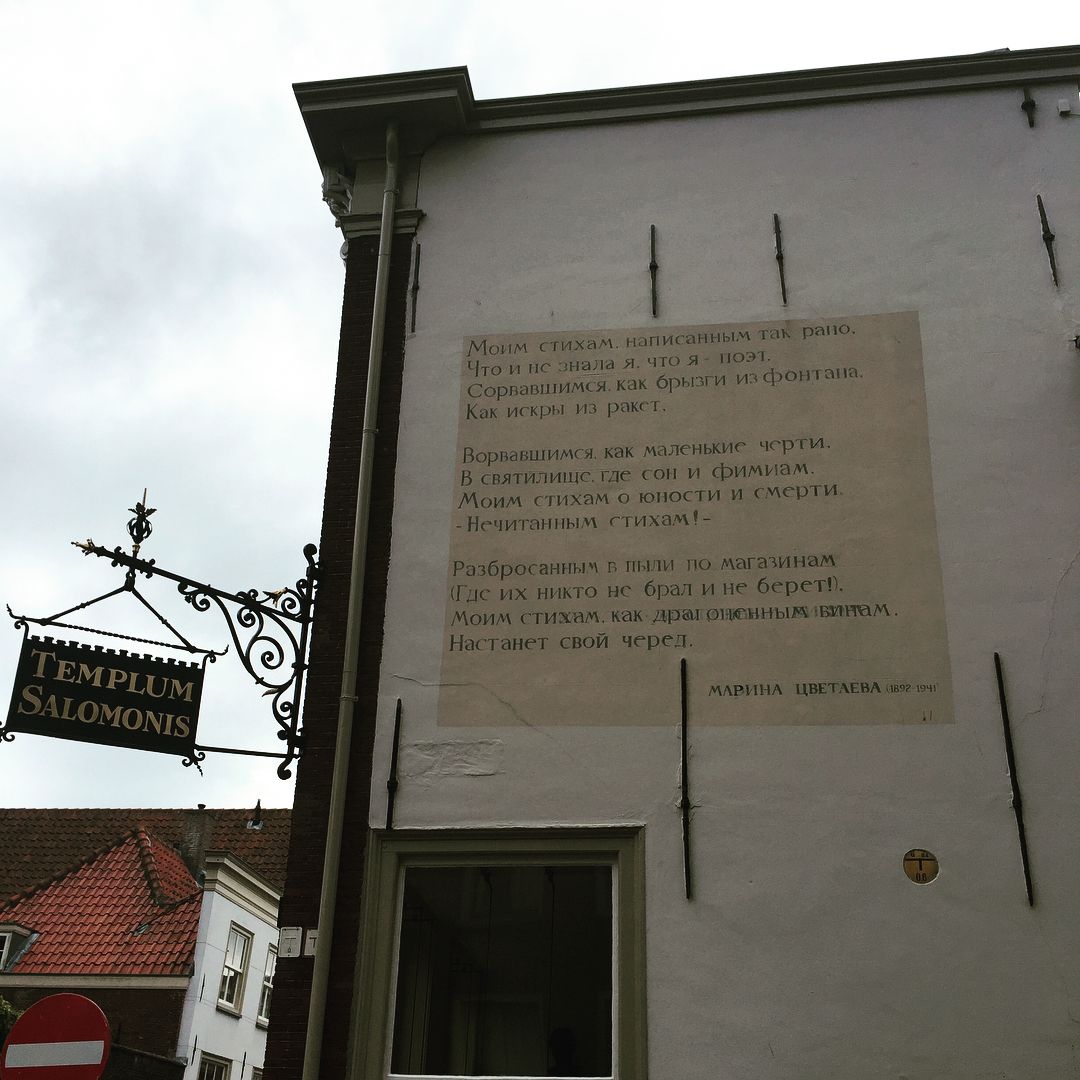 Моим стихам, написанным так рано,
Что и не знала я, что я - поэт,
Сорвавшимся, как брызги из фонтана,
Как искры из ракет,
Ворвавшимся, как маленькие черти,
В святилище, где сон и фимиам,
Моим стихам о юности и смерти,
- Нечитанным стихам! -
Разбросанным в пыли по магазинам
(Где их никто не брал и не берет!),
Моим стихам, как драгоценным винам,
Настанет свой черед.
МАРИНА ЦВЕТАЕВА (1892-1941)
TEMPLUM
SALOMONIS